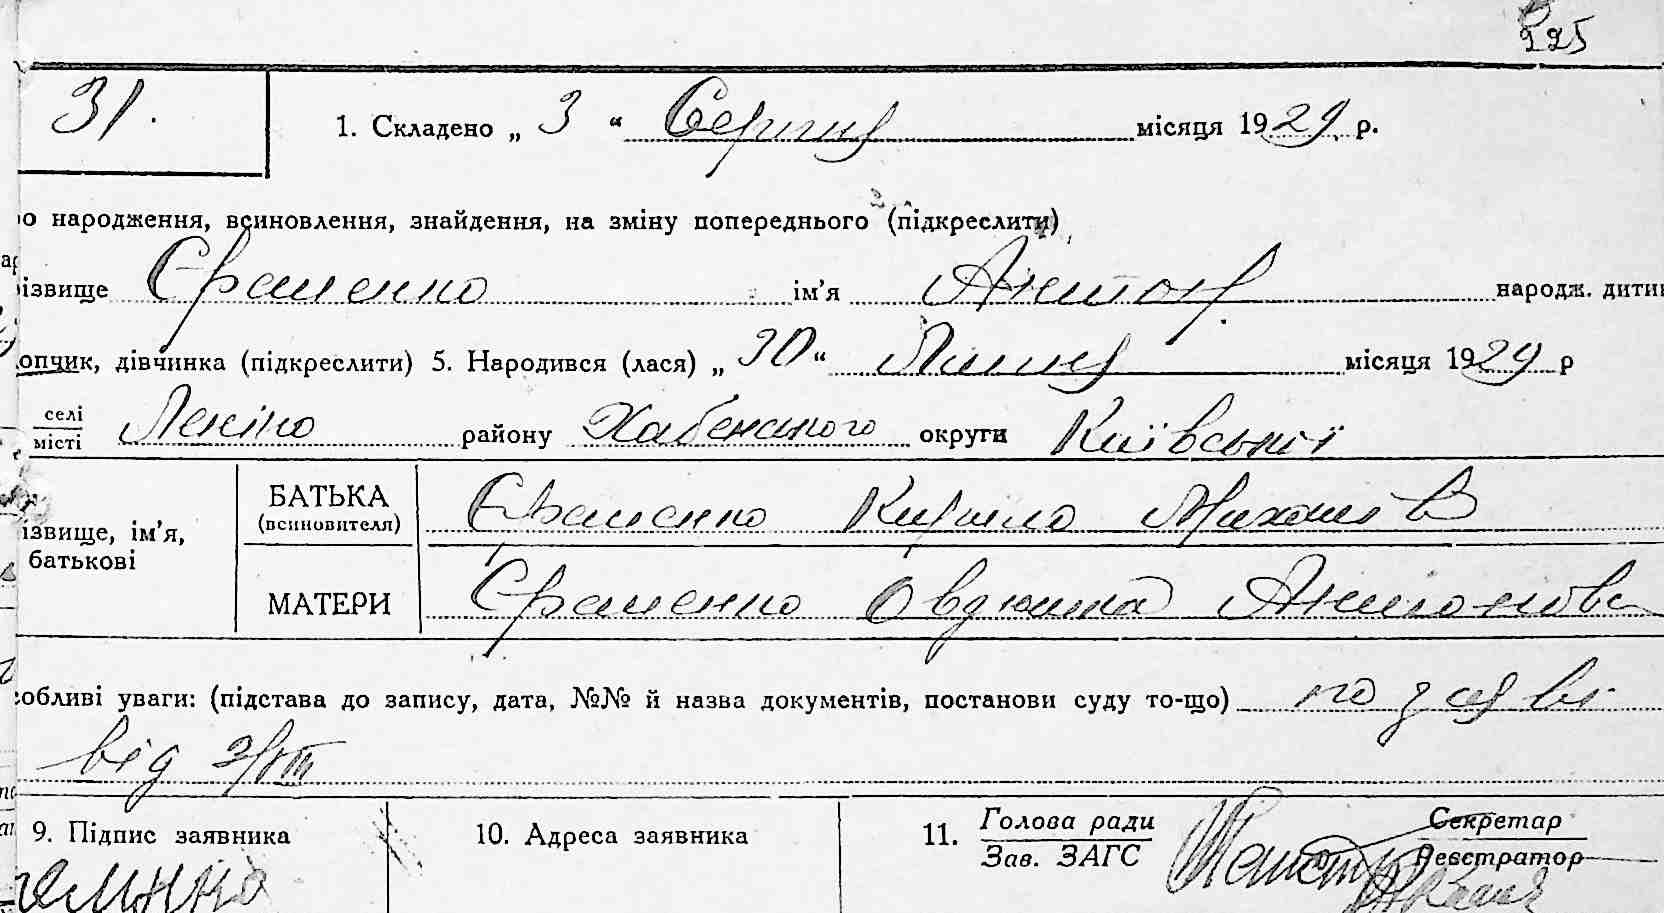 225
31. 1. Складено „ 3 “ Серпня місяця 1929 р.
ро народження, всиновлення, знайдення, на зміну попереднього (підкреслити)
різвище Єременко ім’я Антон народж. дитин
опчик, дівчинка (підкреслити) 5. Народився (лася) „ 30 “ Липня місяця 1929 р
селі
місті Леніно району Хабенського округи Київської
БАТЬКА
(всиновителя) Єременко Кирило Михайлов
ізвище, ім’я,
батькові
МАТЕРИ Єременко Овдюшка Антоновс
собливі уваги: (підстава до запису, дата, №№ й назва документів, постанови суду то-що) по заяві
від 3/VIII
9. Підпис заявника 10. Адреса заявника 11. Голова ради Секретар
Зав. ЗАГС Реєстратор